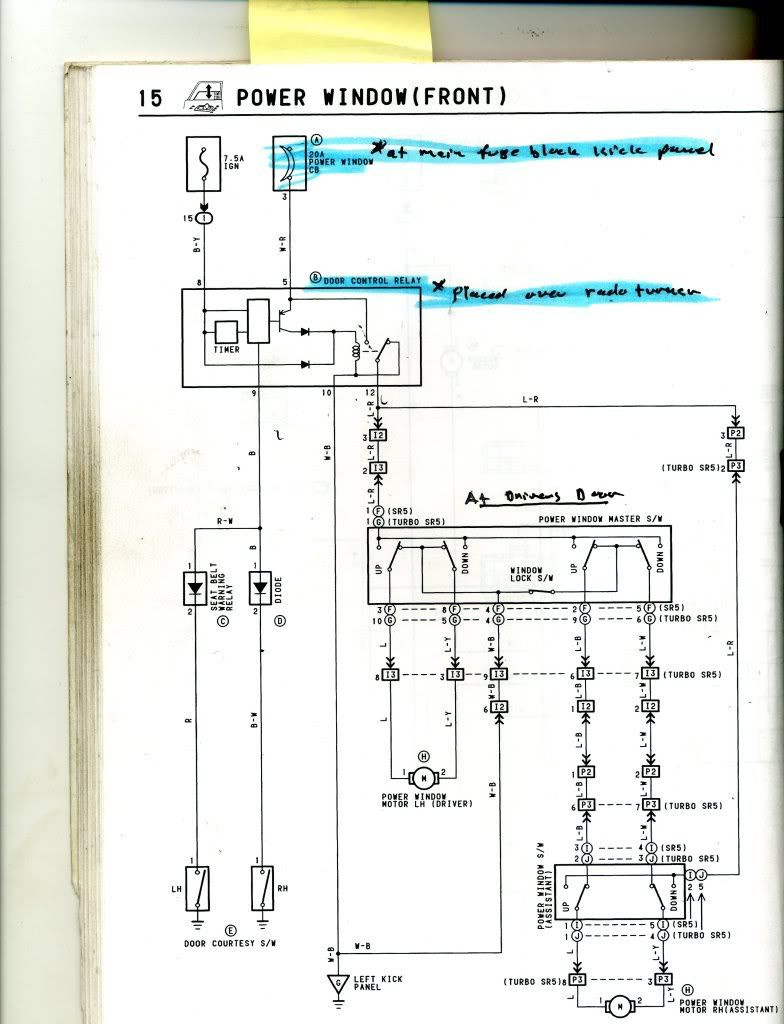 15 POWER WINDOW(FRONT)
7.5A
IGN
A
20A
POWER WINDOW
CB
*at main fuse block kick panel
15 1
3
B-Y
W-R
8
5
B DOOR CONTROL RELAY
*placed over
TIMER
9
10
12
L-R
L-R
3 I2
L-R
2 I3
L-R
3 P2
L-R
(TURBO SR5)2 P3
B
W-B
1 F (SR5)
1 G (TURBO SR5)
At Drivers Door
POWER WINDOW MASTER S/W
R-W
B
UP
DOWN
WINDOW
LOCK S/W
UP
DOWN
1
2
SEAT BELT
WARNING
RELAY
C
1
2
DIODE
D
3 F 8 F 4 F 2 F 5 F (SR5)
10 G 5 G 4 G 9 G 6 G (TURBO SR5)
L
L-Y
W-B
L-B
L-W
L-R
8 I3 3 I3 9 I3 6 I3 7 I3 (TURBO SR5)
W-B
6 I2 1 I2 2 I2
L
L-Y
L-B
L-W
R
B-W
H
1 M 2
POWER WINDOW
MOTOR LH (DRIVER)
W-B
1 P2 2 P2
L-B
L-W
6 P3 7 P3 (TURBO SR5)
L-B
L-W
3 I 4 I (SR5)
2 J 3 J (TURBO SR5)
POWER WINDOW S/W
(ASSISTANT)
UP
DOWN
I J
2 5
1
LH
1
RH
E
DOOR COURTESY S/W
1 I 5 I (SR5)
1 J 4 J (TURBO SR5)
W-B
W-B
G
LEFT KICK
PANEL
L
L-Y
(TURBO SR5)8 P3 3 P3
L
L-Y
1 M 2
H
POWER WINDOW
MOTOR RH(ASSISTANT)